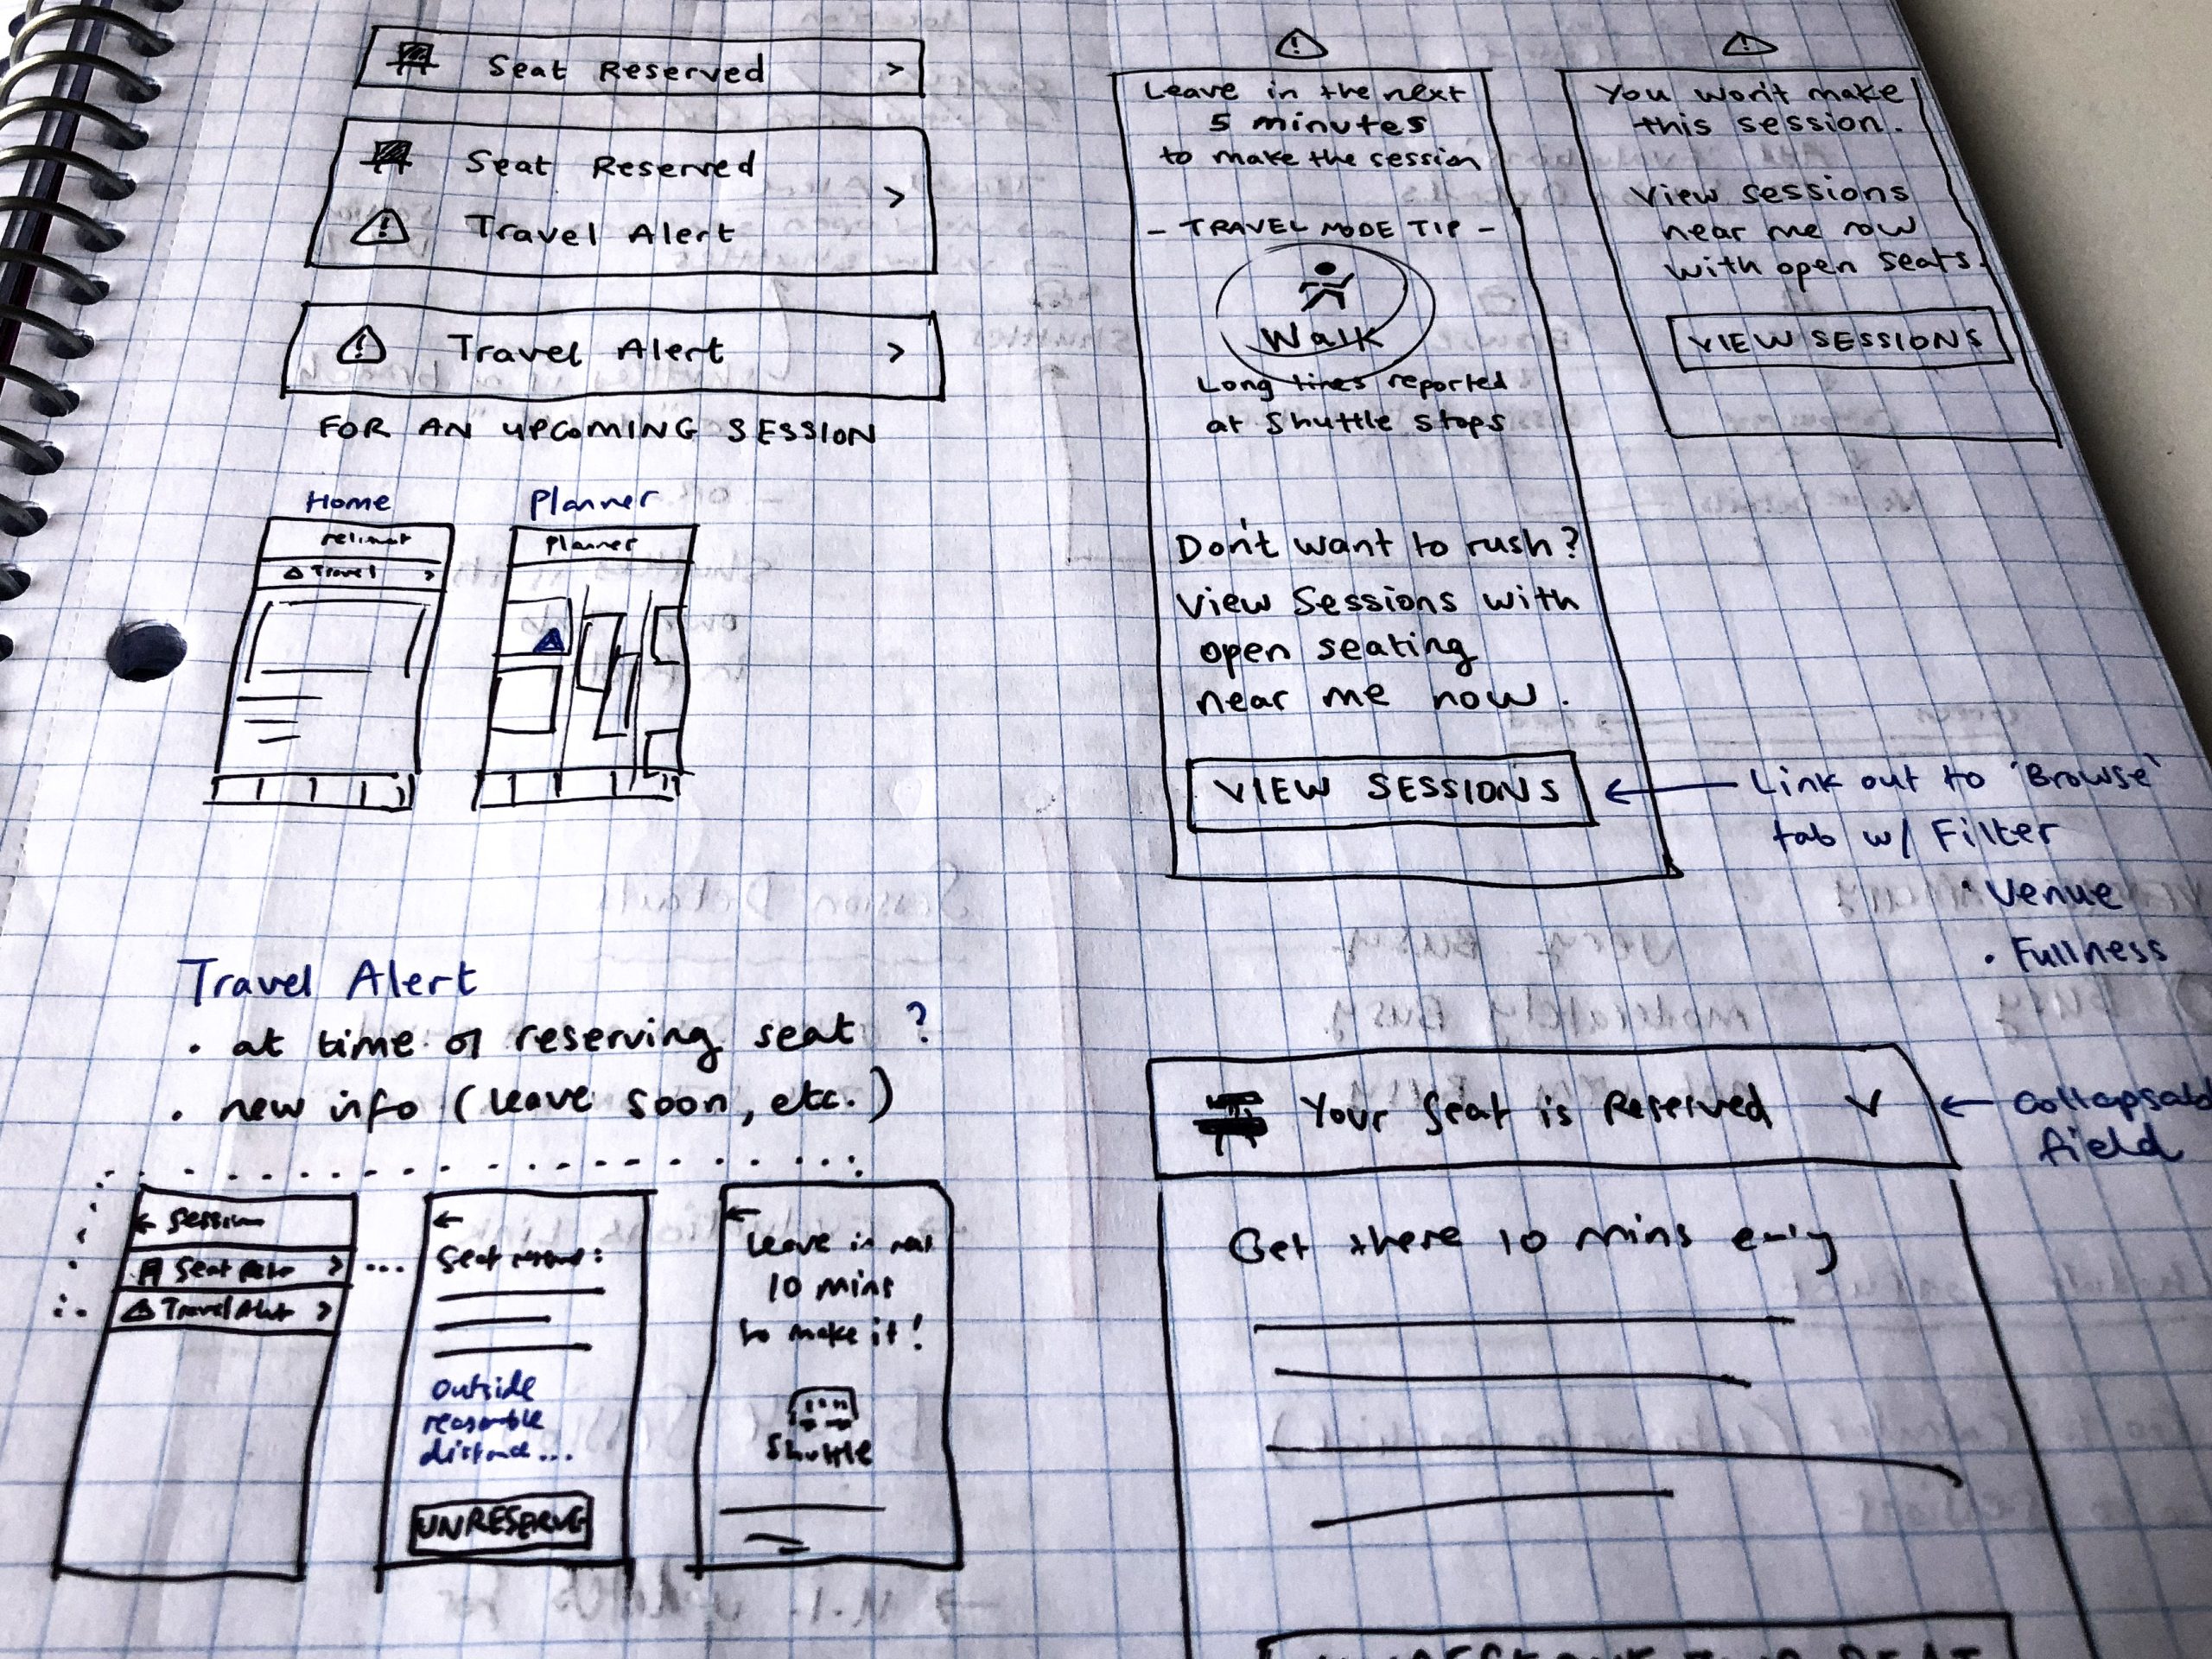 Seat Reserved >
Seat Reserved
>
Travel Alert
Travel Alert >
FOR AN UPCOMING SESSION
Home
Travel >
Planner
Planner
Travel Alert
. at time of reserving seat ?
. new info (leave soon, etc.)
← Session
Seat >
Travel Alert >
...
←
Seat
Outside
reasonable
distance...
UNRESERVE
←
Leave in
10 mins
to make it!
Shuttle
Leave in the next
5 minutes
to make the session
- TRAVEL MODE TIP -
Walk
Long lines reported
at Shuttle stops
Don't want to rush?
View Sessions with
open seating
near me now.
VIEW SESSIONS
← Link out to 'Browse'
tab w/ Filter
• Venue
• Fullness
You won't make
this session.
View sessions
near me now
with open seats.
VIEW SESSIONS
Your Seat is Reserved
← collapsabl
field
Get there 10 mins